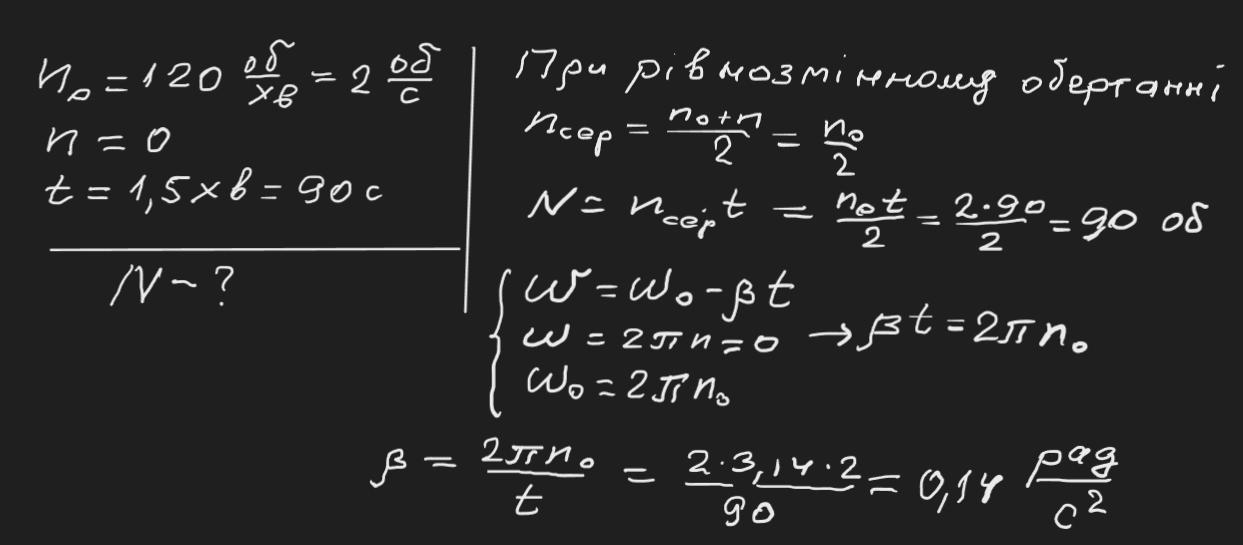 n₀ = 120 об/хв = 2 об/с
n = 0
t = 1,5 хв = 90 с
N - ?
При рівнозмінному обертанні
nсер = (n₀ + n)/2 = n₀/2
N = nсер t = n₀t/2 = 2·90/2 = 90 об
ω = ω₀ - βt
ω = 2πn = 0 → βt = 2πn₀
ω₀ = 2πn₀
β = 2πn₀/t = 2·3,14·2/90 = 0,14 рад/с²